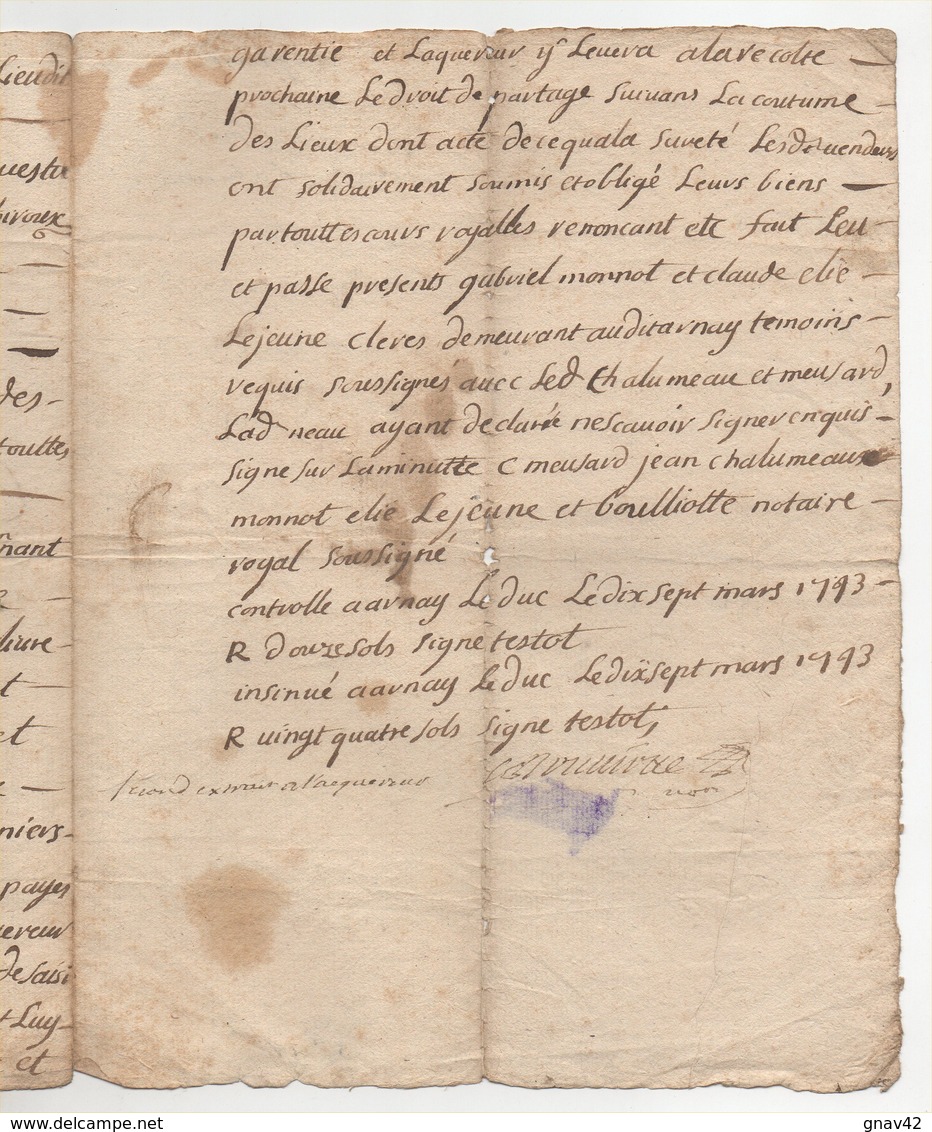 Lieudit
uestu
biroux
des-
touttes
nant
liure-
t
et
niers-
payes
uereur
de saisi
t Luy
et
garentie et Laquereur yst Leuera ala recolte
prochaine Le droit de partage suiuans La coutume
des Lieux dont acte de ce quala sureté Lesd. uendeurs
ont solidairement soumis et obligé Leurs biens
par touttes cours royalles renoncant etc fait Leu
et passe presents gabriel monnot et claude elie
Lejeune clercs demeurant audit arnay temoins
requis soussignés auec Led chalumeau et meusard,
Lad neau ayant declarée ne scauoir signer enquis
signe sur La minutte C meusard jean chalumeaux
monnot elie Lejeune et boulliotte notaire
royal soussigné
controlle a arnay Le duc Le dix sept mars 1743
R douze sols signe testot
insinué a arnay Le duc Le dix sept mars 1743
R uingt quatre sols signe testot,
second extrait a l'acquereur
Delcampe.net
gnav42